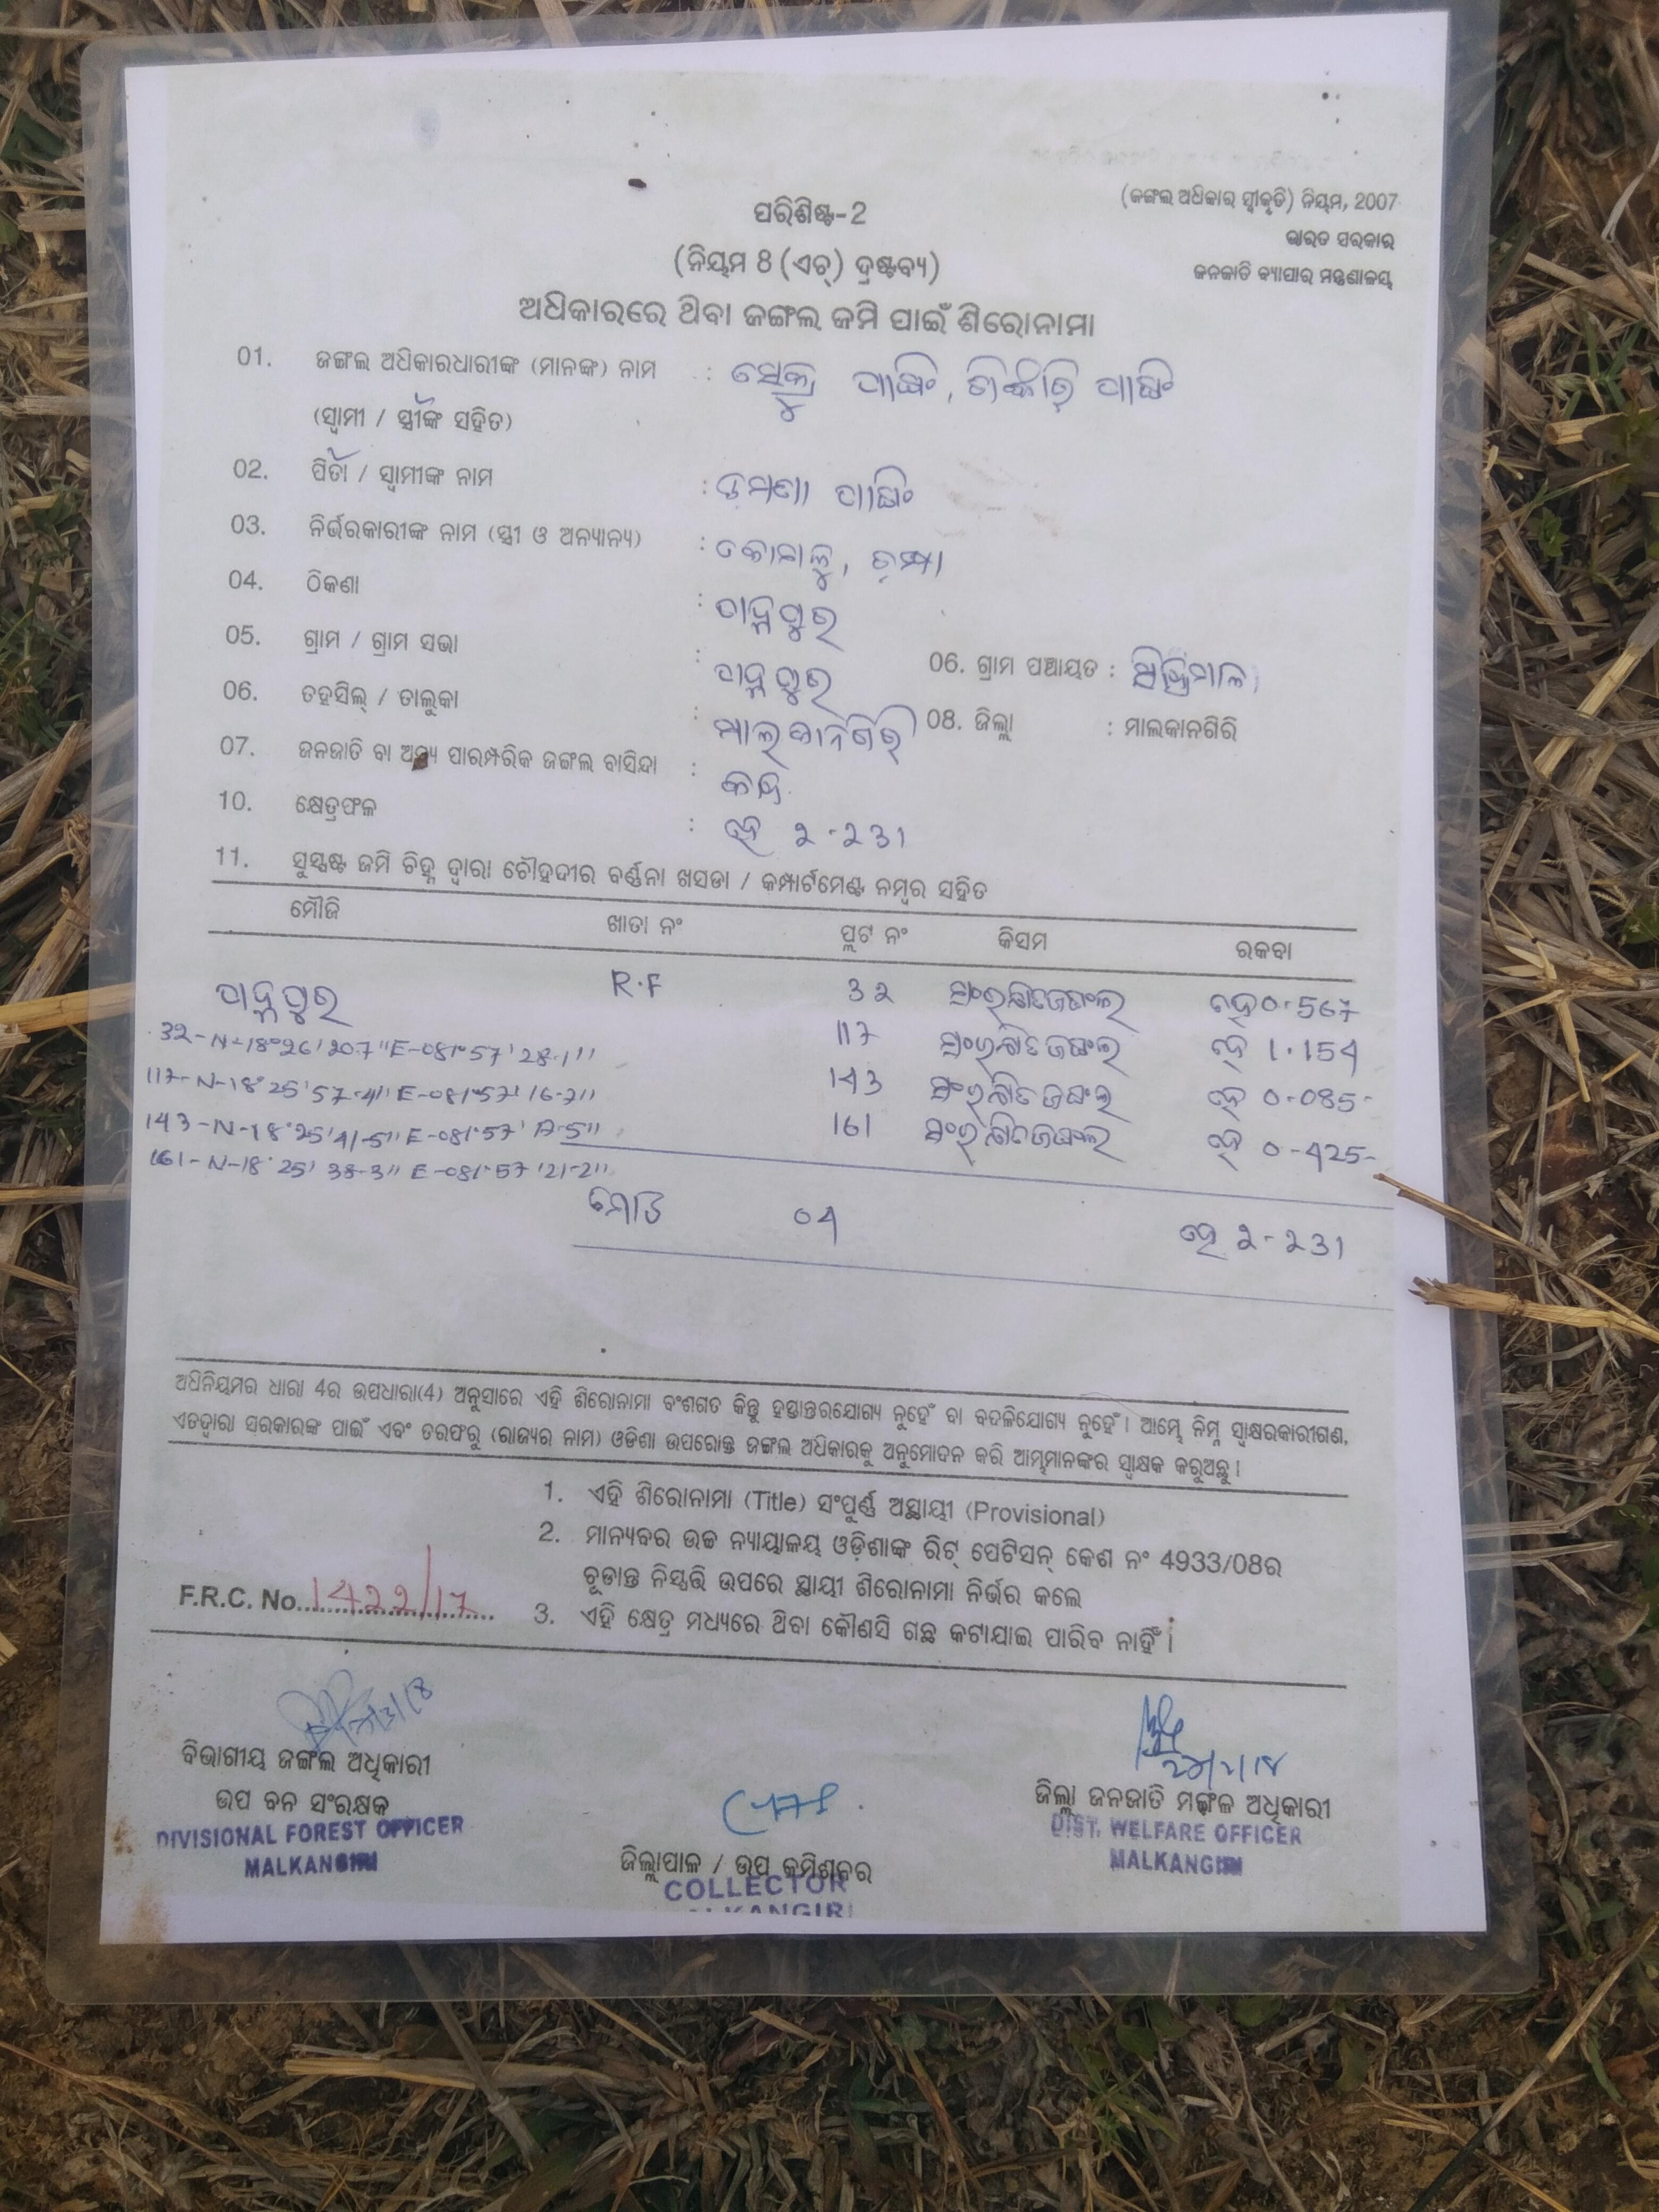 (ଜଙ୍ଗଲ ଅଧିକାର ସ୍ୱୀକୃତି) ନିୟମ, 2007
ଭାରତ ସରକାର
ଜନଜାତି ବ୍ୟାପାର ମନ୍ତ୍ରଣାଳୟ
ପରିଶିଷ୍ଟ-2
(ନିୟମ 8 (ଏଚ୍) ଦ୍ରଷ୍ଟବ୍ୟ)
ଅଧିକାରରେ ଥିବା ଜଙ୍ଗଲ ଜମି ପାଇଁ ଶିରୋନାମା
01. ଜଙ୍ଗଲ ଅଧିକାରଧାରୀଙ୍କ (ମାନଙ୍କ) ନାମ :
(ସ୍ୱାମୀ / ସ୍ତ୍ରୀଙ୍କ ସହିତ)
02. ପିତା / ସ୍ୱାମୀଙ୍କ ନାମ :
03. ନିର୍ଭରକାରୀଙ୍କ ନାମ (ସ୍ତ୍ରୀ ଓ ଅନ୍ୟାନ୍ୟ) :
04. ଠିକଣା :
05. ଗ୍ରାମ / ଗ୍ରାମ ସଭା : 06. ଗ୍ରାମ ପଞ୍ଚାୟତ :
06. ତହସିଲ୍ / ତାଲୁକା : ମାଲକାନଗିରି 08. ଜିଲ୍ଲା : ମାଲକାନଗିରି
07. ଜନଜାତି ବା ଅନ୍ୟ ପାରମ୍ପରିକ ଜଙ୍ଗଲ ବାସିନ୍ଦା :
10. କ୍ଷେତ୍ରଫଳ : ହେ 2-231
11. ସୁସ୍ପଷ୍ଟ ଜମି ଚିହ୍ନ ଦ୍ୱାରା ଚୌହଦୀର ବର୍ଣ୍ଣନା ଖସଡା / କମ୍ପାର୍ଟମେଣ୍ଟ ନମ୍ବର ସହିତ
ମୌଜି ଖାତା ନଂ ପ୍ଲଟ ନଂ କିସମ ରକବା
R.F 32 ସଂରକ୍ଷିତ ଜଙ୍ଗଲ ହେ 0.567
32-N-18°26'20.7"E-081°57'28.1" 117 ସଂରକ୍ଷିତ ଜଙ୍ଗଲ ହେ 1.154
117-N-18°25'57-4"E-081°57'16-2" 143 ସଂରକ୍ଷିତ ଜଙ୍ଗଲ ହେ 0-085-
143-N-18°25'41-5"E-081°57' 161 ସଂରକ୍ଷିତ ଜଙ୍ଗଲ ହେ 0-425-
161-N-18°25'38-3"E-081°57'21-2"
ମୋଟ 04 ହେ 2-231
ଅଧିନିୟମର ଧାରା 4ର ଉପଧାରା(4) ଅନୁସାରେ ଏହି ଶିରୋନାମା ବଂଶଗତ କିନ୍ତୁ ହସ୍ତାନ୍ତରଯୋଗ୍ୟ ନୁହେଁ ବା ବଦଳିଯୋଗ୍ୟ ନୁହେଁ। ଆମ୍ଭେ ନିମ୍ନ ସ୍ୱାକ୍ଷରକାରୀଗଣ,
ଏତଦ୍ଦ୍ୱାରା ସରକାରଙ୍କ ପାଇଁ ଏବଂ ତରଫରୁ (ରାଜ୍ୟର ନାମ) ଓଡିଶା ଉପରୋକ୍ତ ଜଙ୍ଗଲ ଅଧିକାରକୁ ଅନୁମୋଦନ କରି ଆମ୍ଭମାନଙ୍କର ସ୍ୱାକ୍ଷକ କରୁଅଛୁ।
1. ଏହି ଶିରୋନାମା (Title) ସଂପୂର୍ଣ୍ଣ ଅସ୍ଥାୟୀ (Provisional)
2. ମାନ୍ୟବର ଉଚ୍ଚ ନ୍ୟାୟାଳୟ ଓଡ଼ିଶାଙ୍କ ରିଟ୍ ପେଟିସନ୍ କେଶ ନଂ 4933/08ର
ଚୂଡାନ୍ତ ନିସ୍ପତ୍ତି ଉପରେ ସ୍ଥାୟୀ ଶିରୋନାମା ନିର୍ଭର କଲେ
F.R.C. No. 1422/17
3. ଏହି କ୍ଷେତ୍ର ମଧ୍ୟରେ ଥିବା କୌଣସି ଗଛ କଟାଯାଇ ପାରିବ ନାହିଁ।
ବିଭାଗୀୟ ଜଙ୍ଗଲ ଅଧିକାରୀ
ଉପ ବନ ସଂରକ୍ଷକ
DIVISIONAL FOREST OFFICER
MALKANGIRI
ଜିଲ୍ଲାପାଳ / ଉପ କମିଶନର
COLLECTOR
MALKANGIRI
ଜିଲ୍ଲା ଜନଜାତି ମଙ୍ଗଳ ଅଧିକାରୀ
DIST. WELFARE OFFICER
MALKANGIRI